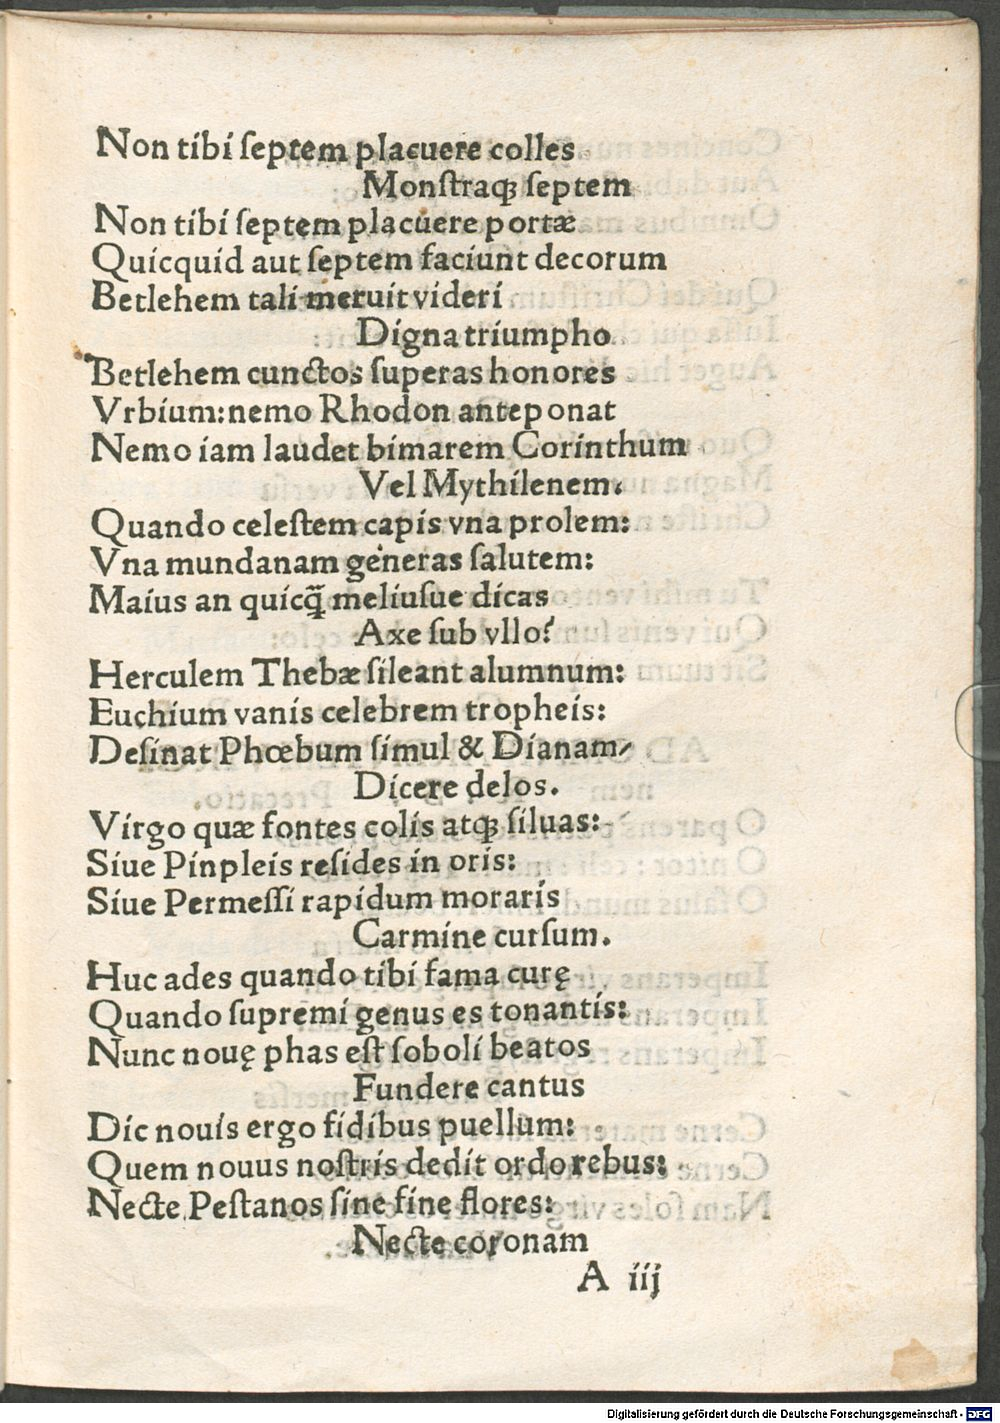 Non tibi ſeptem placuere colles.
Monſtraqꝫ ſeptem
Non tibi ſeptem placuere portæ
Quicquid aut ſeptem faciunt decorum
Betlehem tali meruit videri
Digna triumpho
Betlehem cunctos ſuperas honores
Vrbium: nemo Rhodon anteponat
Nemo iam laudet bimarem Corinthum
Vel Mythilenem.
Quando celeſtem capis vna prolem:
Vna mundanam generas ſalutem:
Maius an quicꝗ̃ meliuſue dicas
Axe ſub vllo?
Herculem Thebæ ſileant alumnum:
Euchium vanis celebrem tropheis:
Deſinat Phœbum ſimul & Dianam/
Dicere delos.
Virgo quæ fontes colis atqꝫ ſiluas:
Siue Pinpleis reſides in oris:
Siue Permeſſi rapidum moraris
Carmine curſum.
Huc ades quando tibi fama curę
Quando ſupremi genus es tonantis:
Nunc nouę phas eſt ſoboli beatos
Fundere cantus
Dic nouis ergo fidibus puellum:
Quem nouus noſtris dedit ordo rebus:
Necte Peſtanos ſine fine flores:
Necte coronam
A iij
Digitalisierung gefördert durch die Deutsche Forschungsgemeinschaft - DFG